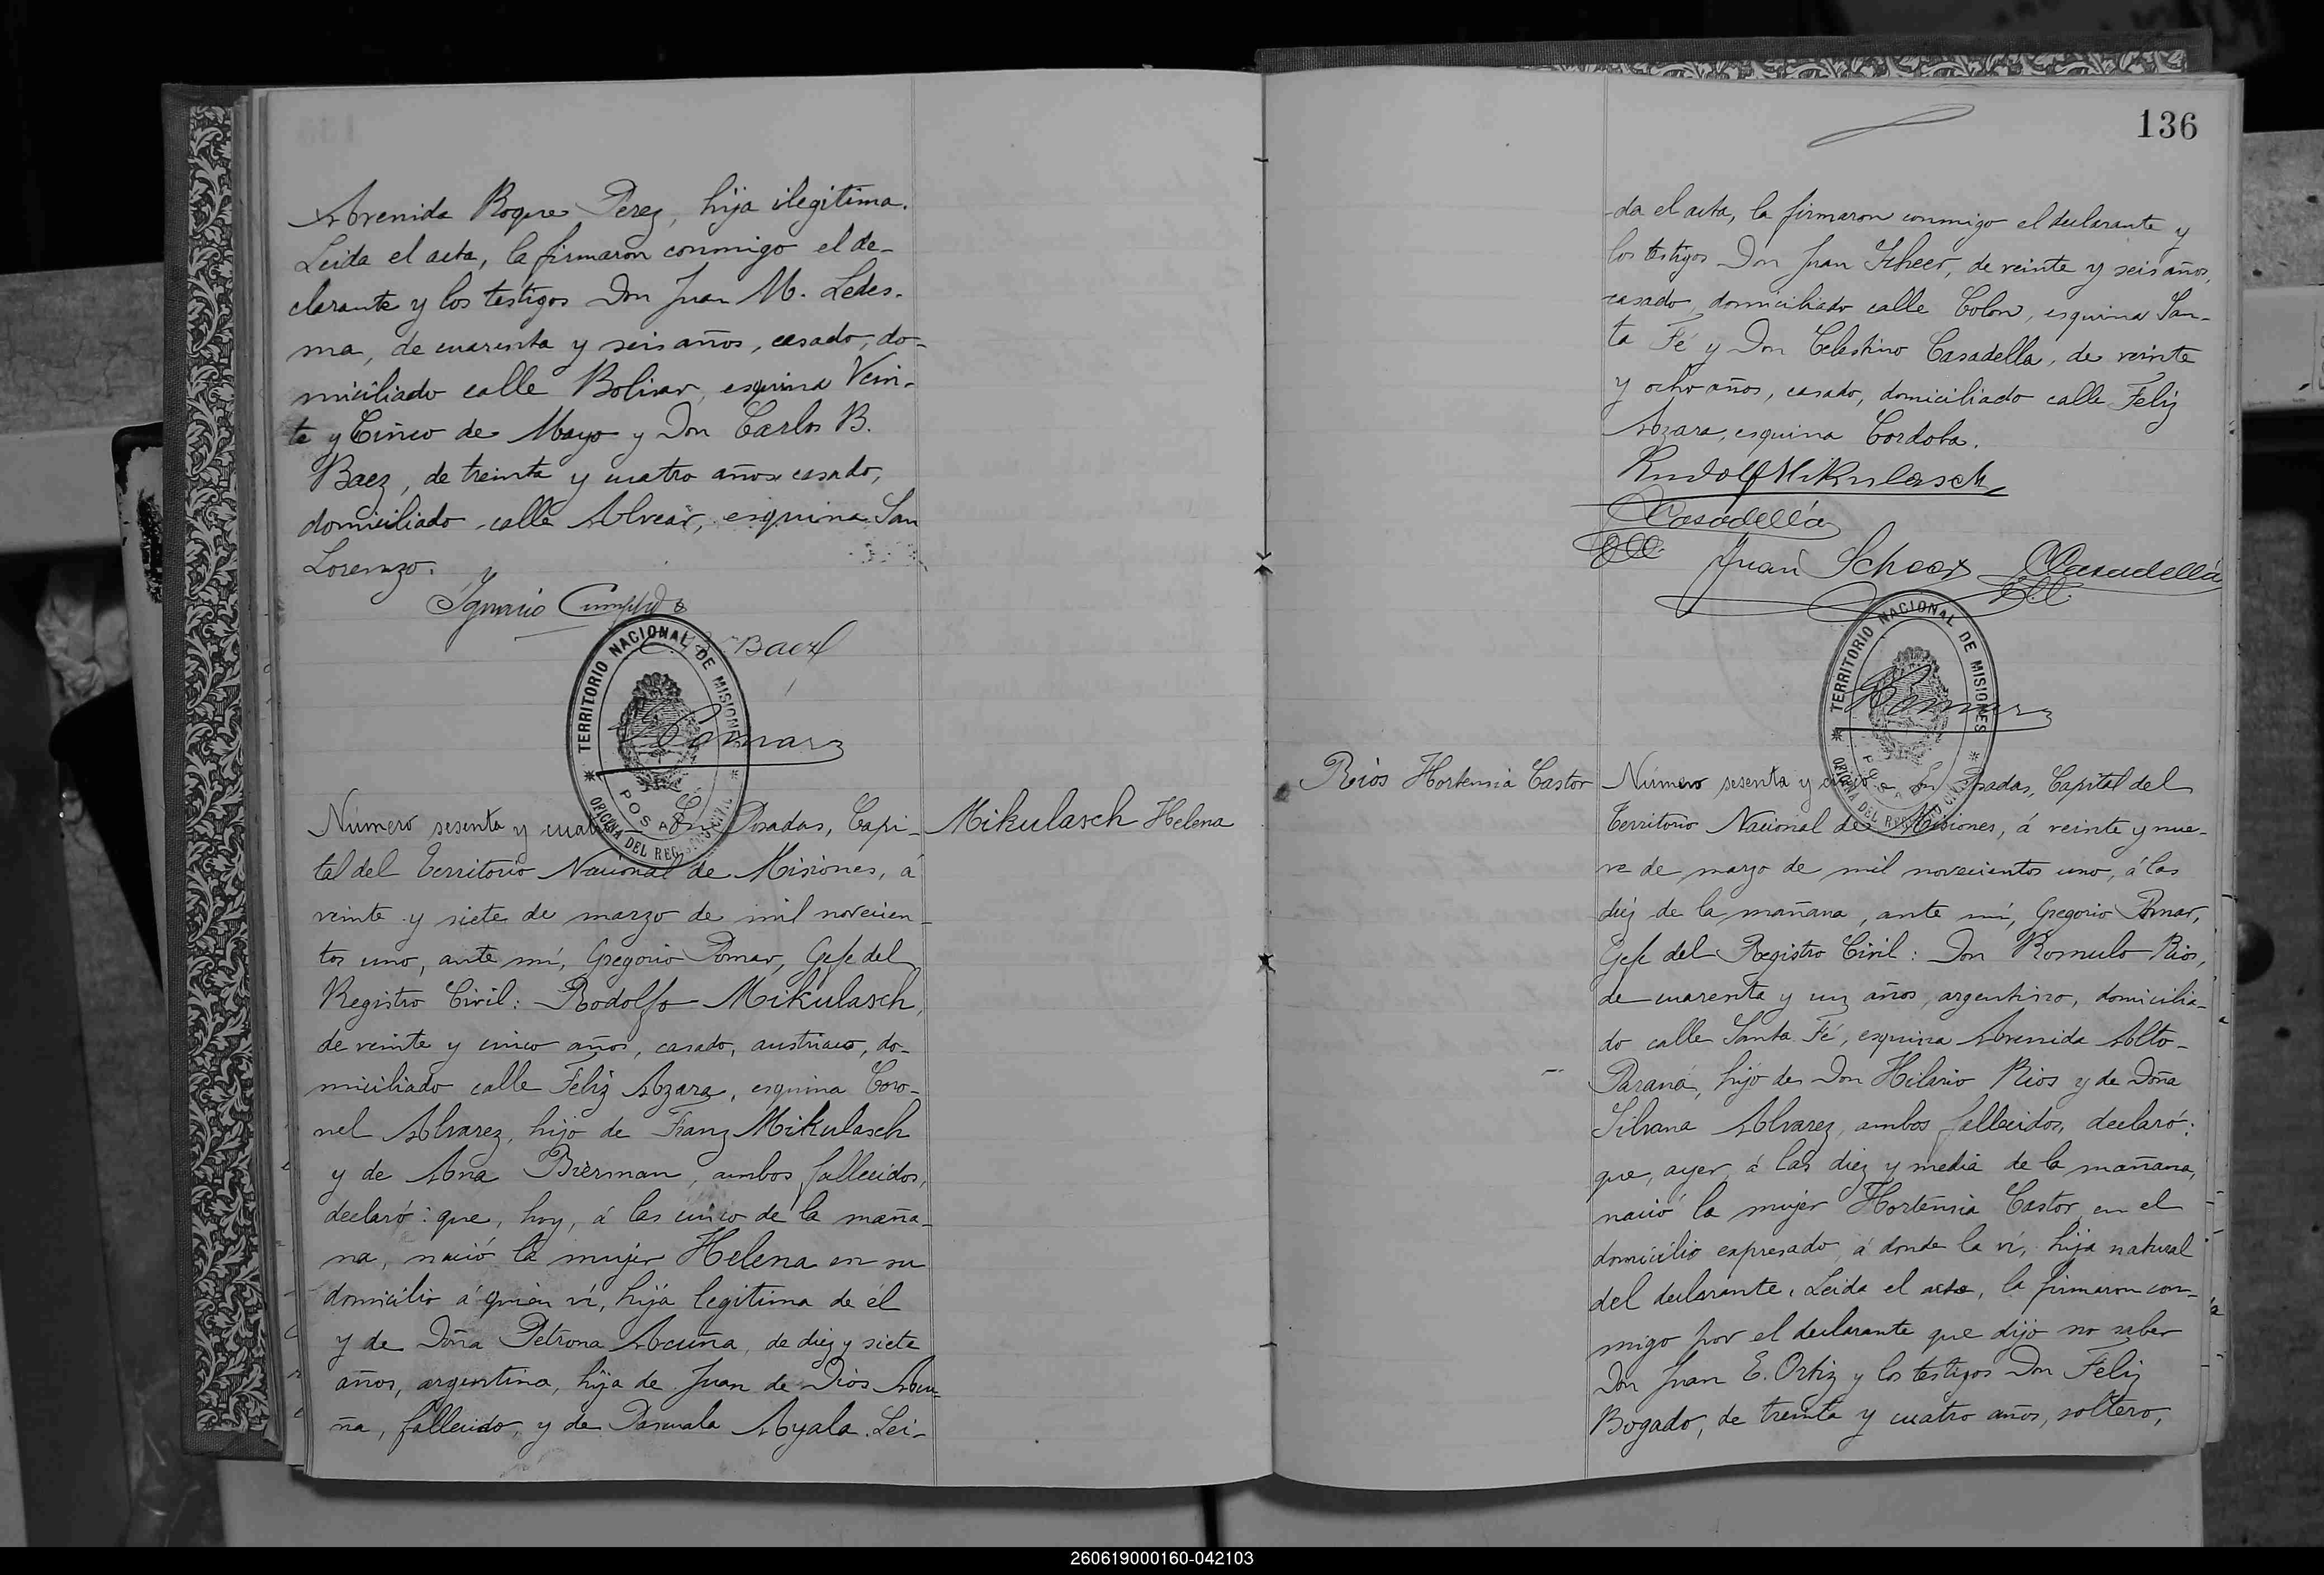 Avenida Roque Perez, hija ilegitima.
Leida el acta, la firmaron conmigo el de-
clarante y los testigos Don Juan M. Ledes-
ma, de cuarenta y seis años, casado, do-
miciliado calle Bolivar, esquina Vein-
te y Cinco de Mayo y Don Carlos B.
Baez, de treinta y cuatro años casado,
domiciliado calle Alvear, esquina San
Lorenzo.
Ignacio
Baez
TERRITORIO NACIONAL DE MISIONES
POSADAS
OFICINA DEL REGISTRO CIVIL
G Pomar
Número sesenta y cuatro En Posadas, Capi-
tal del Territorio Nacional de Misiones, á
veinte y siete de marzo de mil novecien-
tos uno, ante mí, Gregorio Pomar, Gefe del
Registro Civil: Rodolfo Mikulasch,
de veinte y cinco años, casado, austriaco, do-
miciliado calle Feliz Azara, esquina Coro-
nel Alvarez, hijo de Franz Mikulasch
y de Ana Bierman, ambos fallecidos,
declaró: que, hoy, á las cinco de la maña-
na, nació la mujer Helena en su
domicilio á quien ví, hija legitima de él
y de Doña Petrona Acuña, de diez y siete
años, argentina, hija de Juan de Dios Acu-
ña, fallecido, y de Pascuala Ayala. Lei-
Mikulasch Helena
136
-da el acta, la firmaron conmigo el declarante y
los testigos Don Juan Scheer, de veinte y seis años,
casado, domiciliado calle Colon, esquina San-
ta Fé y Don Celestino Casadella, de veinte
y ocho años, casado, domiciliado calle Feliz
Azara, esquina Cordoba.
Rudolf Mikulasch
CCasadellá
Juan Scheer CCasadellá
TERRITORIO NACIONAL DE MISIONES
POSADAS
OFICINA DEL REGISTRO CIVIL
G Pomar
Rios Hortensia Castor
Número sesenta y cinco En Posadas, Capital del
Territorio Nacional de Misiones, á veinte y nue-
ve de marzo de mil novecientos uno, á las
diez de la mañana, ante mí, Gregorio Pomar,
Gefe del Registro Civil: Don Romulo Rios,
de cuarenta y un años, argentino, domicilia-
do calle Santa Fé, esquina Avenida Alto-
Paraná, hijo de Don Hilario Rios y de Doña
Silvana Alvarez, ambos fallecidos, declaró:
que, ayer, á las diez y media de la mañana,
nació la mujer Hortensia Castor, en el
domicilio expresado á donde la ví, hija natural
del declarante. Leida el acta, la firmaron con-
migo por el declarante que dijo no saber
Don Juan E. Ortiz y los testigos Don Feliz
Bogado, de treinta y cuatro años, soltero,
260619000160-042103